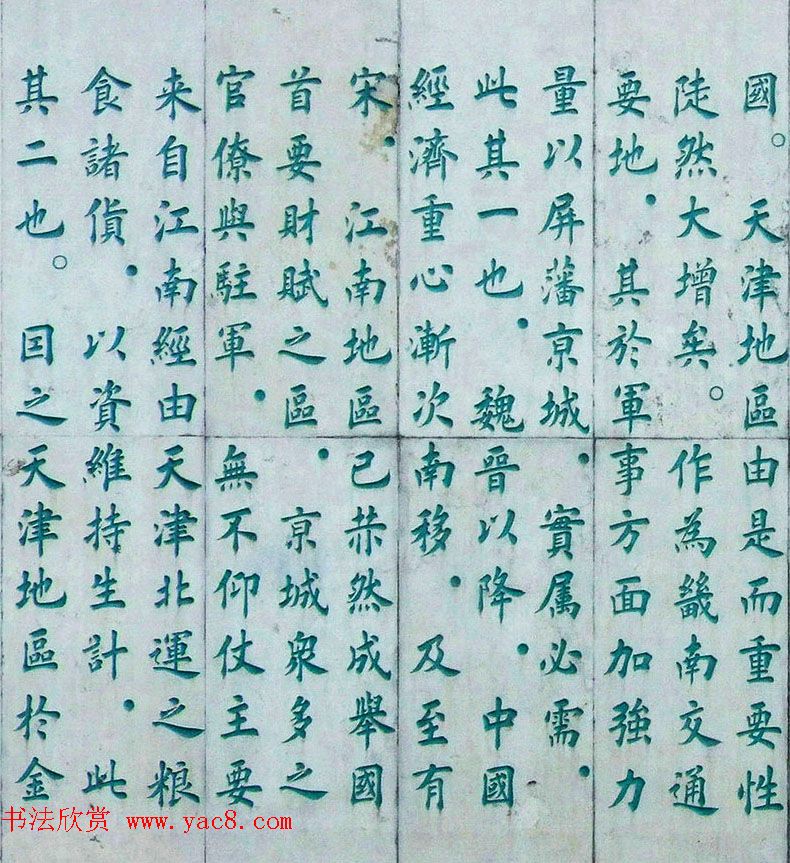 國。天津地區由是而重要性
陡然大增矣。作為畿南交通
要地．其於軍事方面加強力
量以屏藩亰城．實属必需．
此其一也．魏晉以降．中國
經濟重心漸次南移．及至有
宋．江南地區已恭然成舉國
首要財賦之區．亰城衆多之
官僚與駐軍．無不仰仗主要
来自江南經由天津北運之粮
食諸貨．以資維持生計．此
其二也。因之天津地區於金
书法欣赏 www.yac8.com